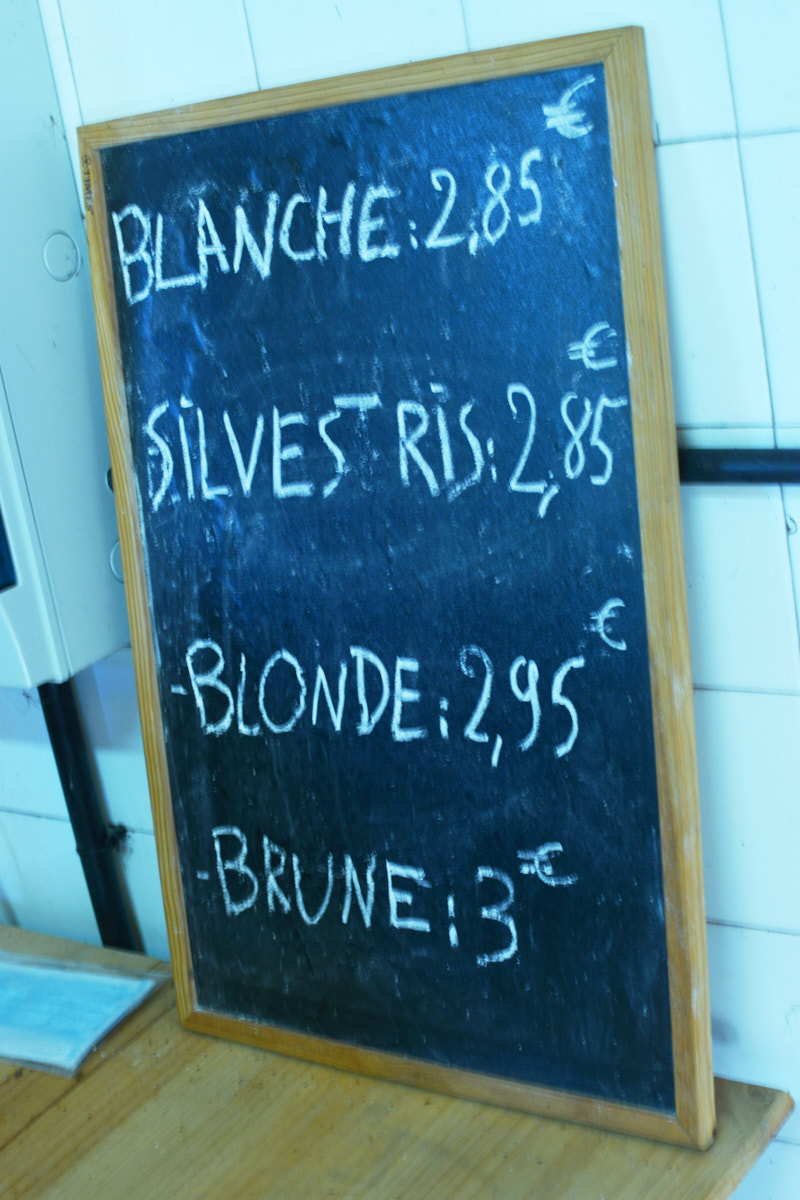 BLANCHE: 2,85 €
SILVESTRIS: 2,85 €
-BLONDE: 2,95 €
-BRUNE: 3 €